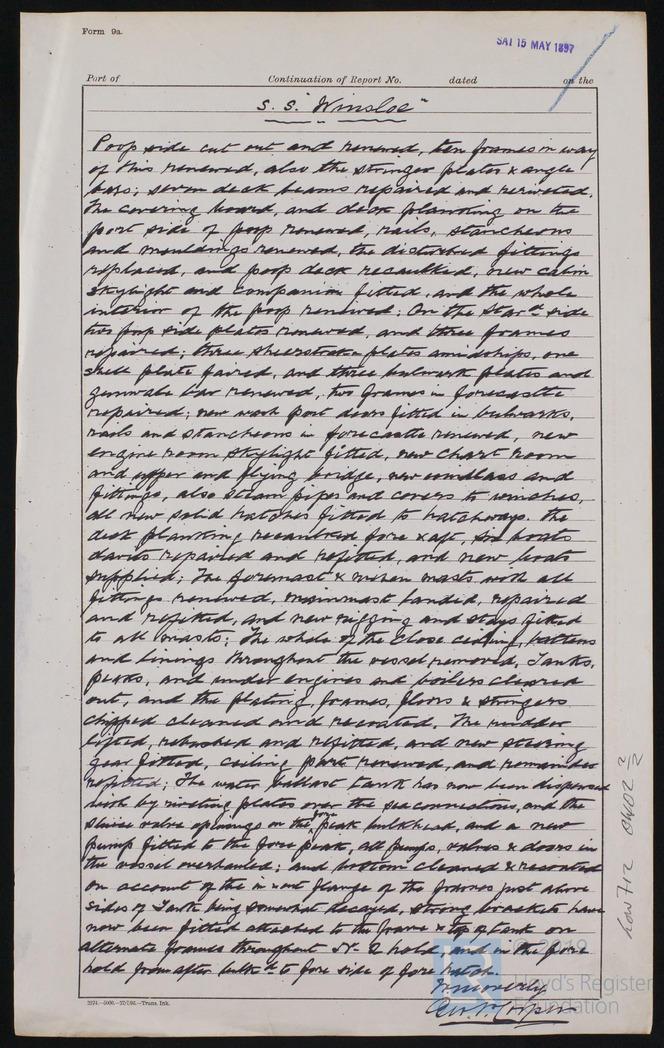 Form 9a.
SAT 15 MAY 1897
Port of Continuation of Report No. dated on the
S. S. "Winsloe"
Poop side cut out and renewed, ten frames in way
of this renewed, also the stringer plates & angle
bars; seven deck beams repaired and reriveted.
The covering board, and deck planking on the
port side of poop renewed, rails, stancheons
and mouldings renewed, the disturbed fittings
replaced, and poop deck recaulked, new cabin
skylight and companion fitted, and the whole
interior of the poop renewed: On the Starbd side
two poop side plates renewed, and three frames
repaired; three sheerstrake plates amidships, one
shell plate faired, and three bulwark plates and
gunwale bar renewed, two frames in forecastle
repaired; new wash port doors fitted in bulwarks,
rails and stancheons in forecastle renewed, new
engine room skylight fitted, new chart room
and upper and flying bridge, new windlass and
fittings, also steam pipes and covers to winches,
all new solid hatches fitted to hatchways. The
deck planking recaulked fore & aft, six boats
davits repaired and refitted, and new boats
supplied; The foremast & mizen masts with all
fittings renewed, mainmast landed, repaired
and refitted, and new rigging and stays fitted
to all masts; The whole of the close ceiling, battens
and linings throughout the vessel removed, Tanks,
peaks, and under engines and boilers cleared
out, and the plating, frames, floors & stringers
chipped cleaned and recoated. The rudder
lifted, rebushed and refitted, and new steering
gear fitted, ceiling part renewed, and remainder
refitted; The water ballast tank has now been dispensed
with by riveting plates over the sea connections, and the
sluice valve openings on the fore peak bulkhead, and a new
pump fitted to the fore peak, all pumps, valves & doors in
the vessel overhauled; and bottom cleaned & recoated
on account of the in & out flange of the frames just above
sides of Tank being somewhat decayed, strong brackets have
now been fitted attached to the frame & top of tank on
alternate frames throughout No 2 hold, and in the fore
hold from after bulkd to fore side of fore hatch.
Geo.
Low 712
2274.—5000.—
—Trans. Ink.
© 2019
Lloyd's Register
Foundation